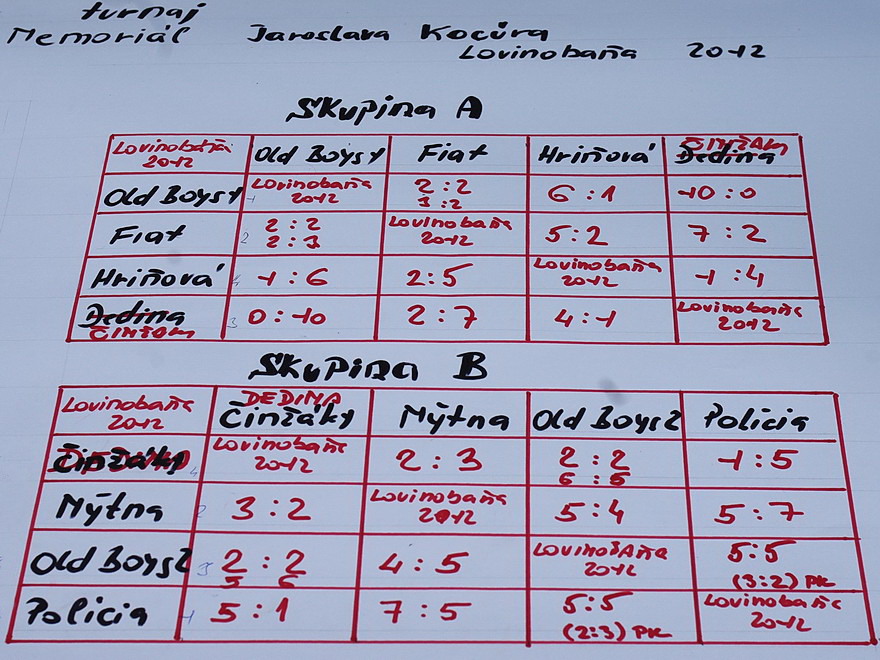 turnaj
Memoriál Jaroslava Kocúra
Lovinobaňa 2012
Skupina A
Lovinobaňa 2012 Old Boys1 Fiat Hriňová Dedina ČINŽÁKY
Old Boys1 1 Lovinobaňa 2012 2:2 3:2 6:1 10:0
Fiat 2 2:2 2:3 Lovinobaňa 2012 5:2 7:2
Hriňová 4 1:6 2:5 Lovinobaňa 2012 1:4
Dedina ČINŽÁKY 3 0:10 2:7 4:1 Lovinobaňa 2012
Skupina B
Lovinobaňa 2012 DEDINA Činžáky Mýtna Old Boys2 Polícia
Činžáky 4 Lovinobaňa 2012 2:3 2:2 6:5 1:5
Mýtna 2 3:2 Lovinobaňa 2012 5:4 5:7
Old Boys2 3 2:2 5 6 4:5 Lovinobaňa 2012 5:5 (3:2) PK
Polícia 1 5:1 7:5 5:5 (2:3) PK Lovinobaňa 2012